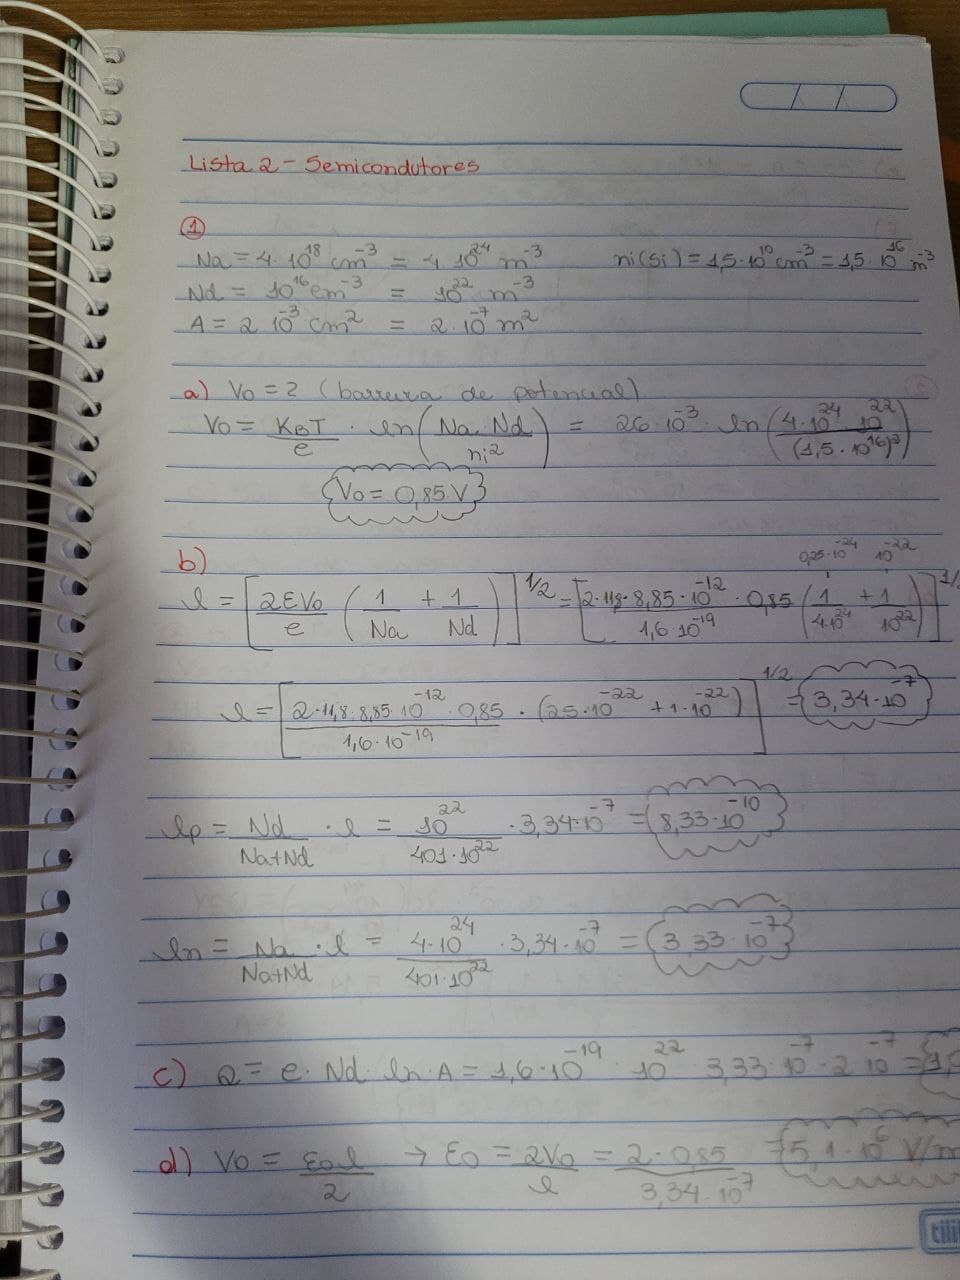 Lista 2 - Semicondutores
①
Na = 4·10¹⁸ cm⁻³ = 4 10²⁴ m⁻³ ni(Si) = 1,5·10¹⁰ cm⁻³ = 1,5·10¹⁶ m⁻³
Nd = 10¹⁶ cm⁻³ = 10²² m⁻³
A = 2 10⁻³ cm² = 2·10⁻⁷ m²
a) Vo = ? (barreira de potencial)
Vo = KBT/e · ln(Na·Nd/ni²) = 26·10⁻³ · ln(4·10²⁴ 10²²/(1,5·10¹⁶)²)
Vo = 0,85 V
0,25·10⁻²⁴ 10⁻²²
b)
l = [2εVo/e (1/Na + 1/Nd)]^1/2 = [2·11,8·8,85·10⁻¹² · 0,85/1,6·10⁻¹⁹ (1/4·10²⁴ + 1/10²²)]^1/2
l = [2·11,8·8,85·10⁻¹² · 0,85/1,6·10⁻¹⁹ · (25·10⁻²² + 1·10⁻²²)]^1/2 = 3,34·10⁻⁷
lp = Nd/Na+Nd · l = 10²²/401·10²² · 3,34·10⁻⁷ = 8,33·10⁻¹⁰
ln = Na/Na+Nd · l = 4·10²⁴/401·10²² · 3,34·10⁻⁷ = 3,33·10⁻⁷
c) Q = e· Nd· ln A = 1,6·10⁻¹⁹ · 10²² 3,33·10⁻⁷ · 2·10⁻⁷ =
d) Vo = εo l/2 → εo = 2Vo/l = 2·0,85/3,34·10⁻⁷ = 5,1·10⁶ V/m
tili